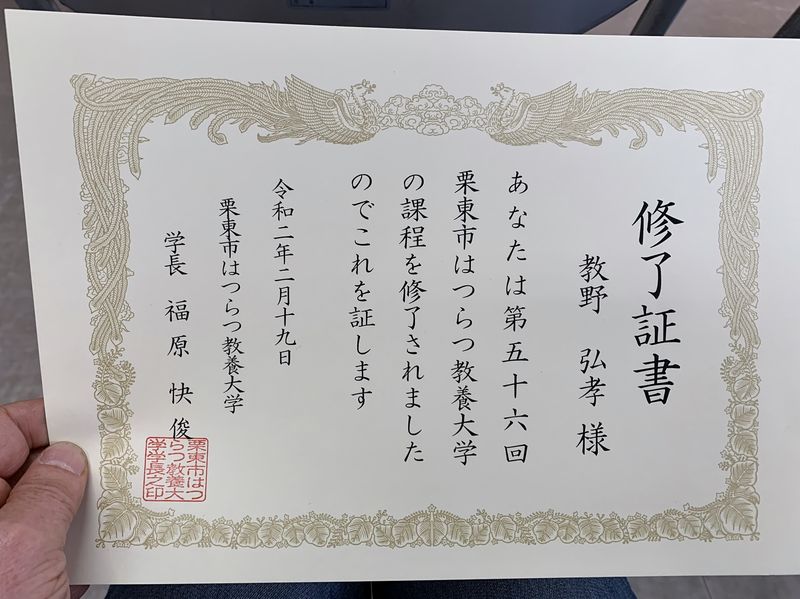 修了証書
教野 弘孝 様
あなたは第五十六回
栗東市はつらつ教養大学
の課程を修了されました
のでこれを証します
令和二年二月十九日
栗東市はつらつ教養大学
学長 福原 快俊
栗東市はつ
らつ教養大
学学長之印